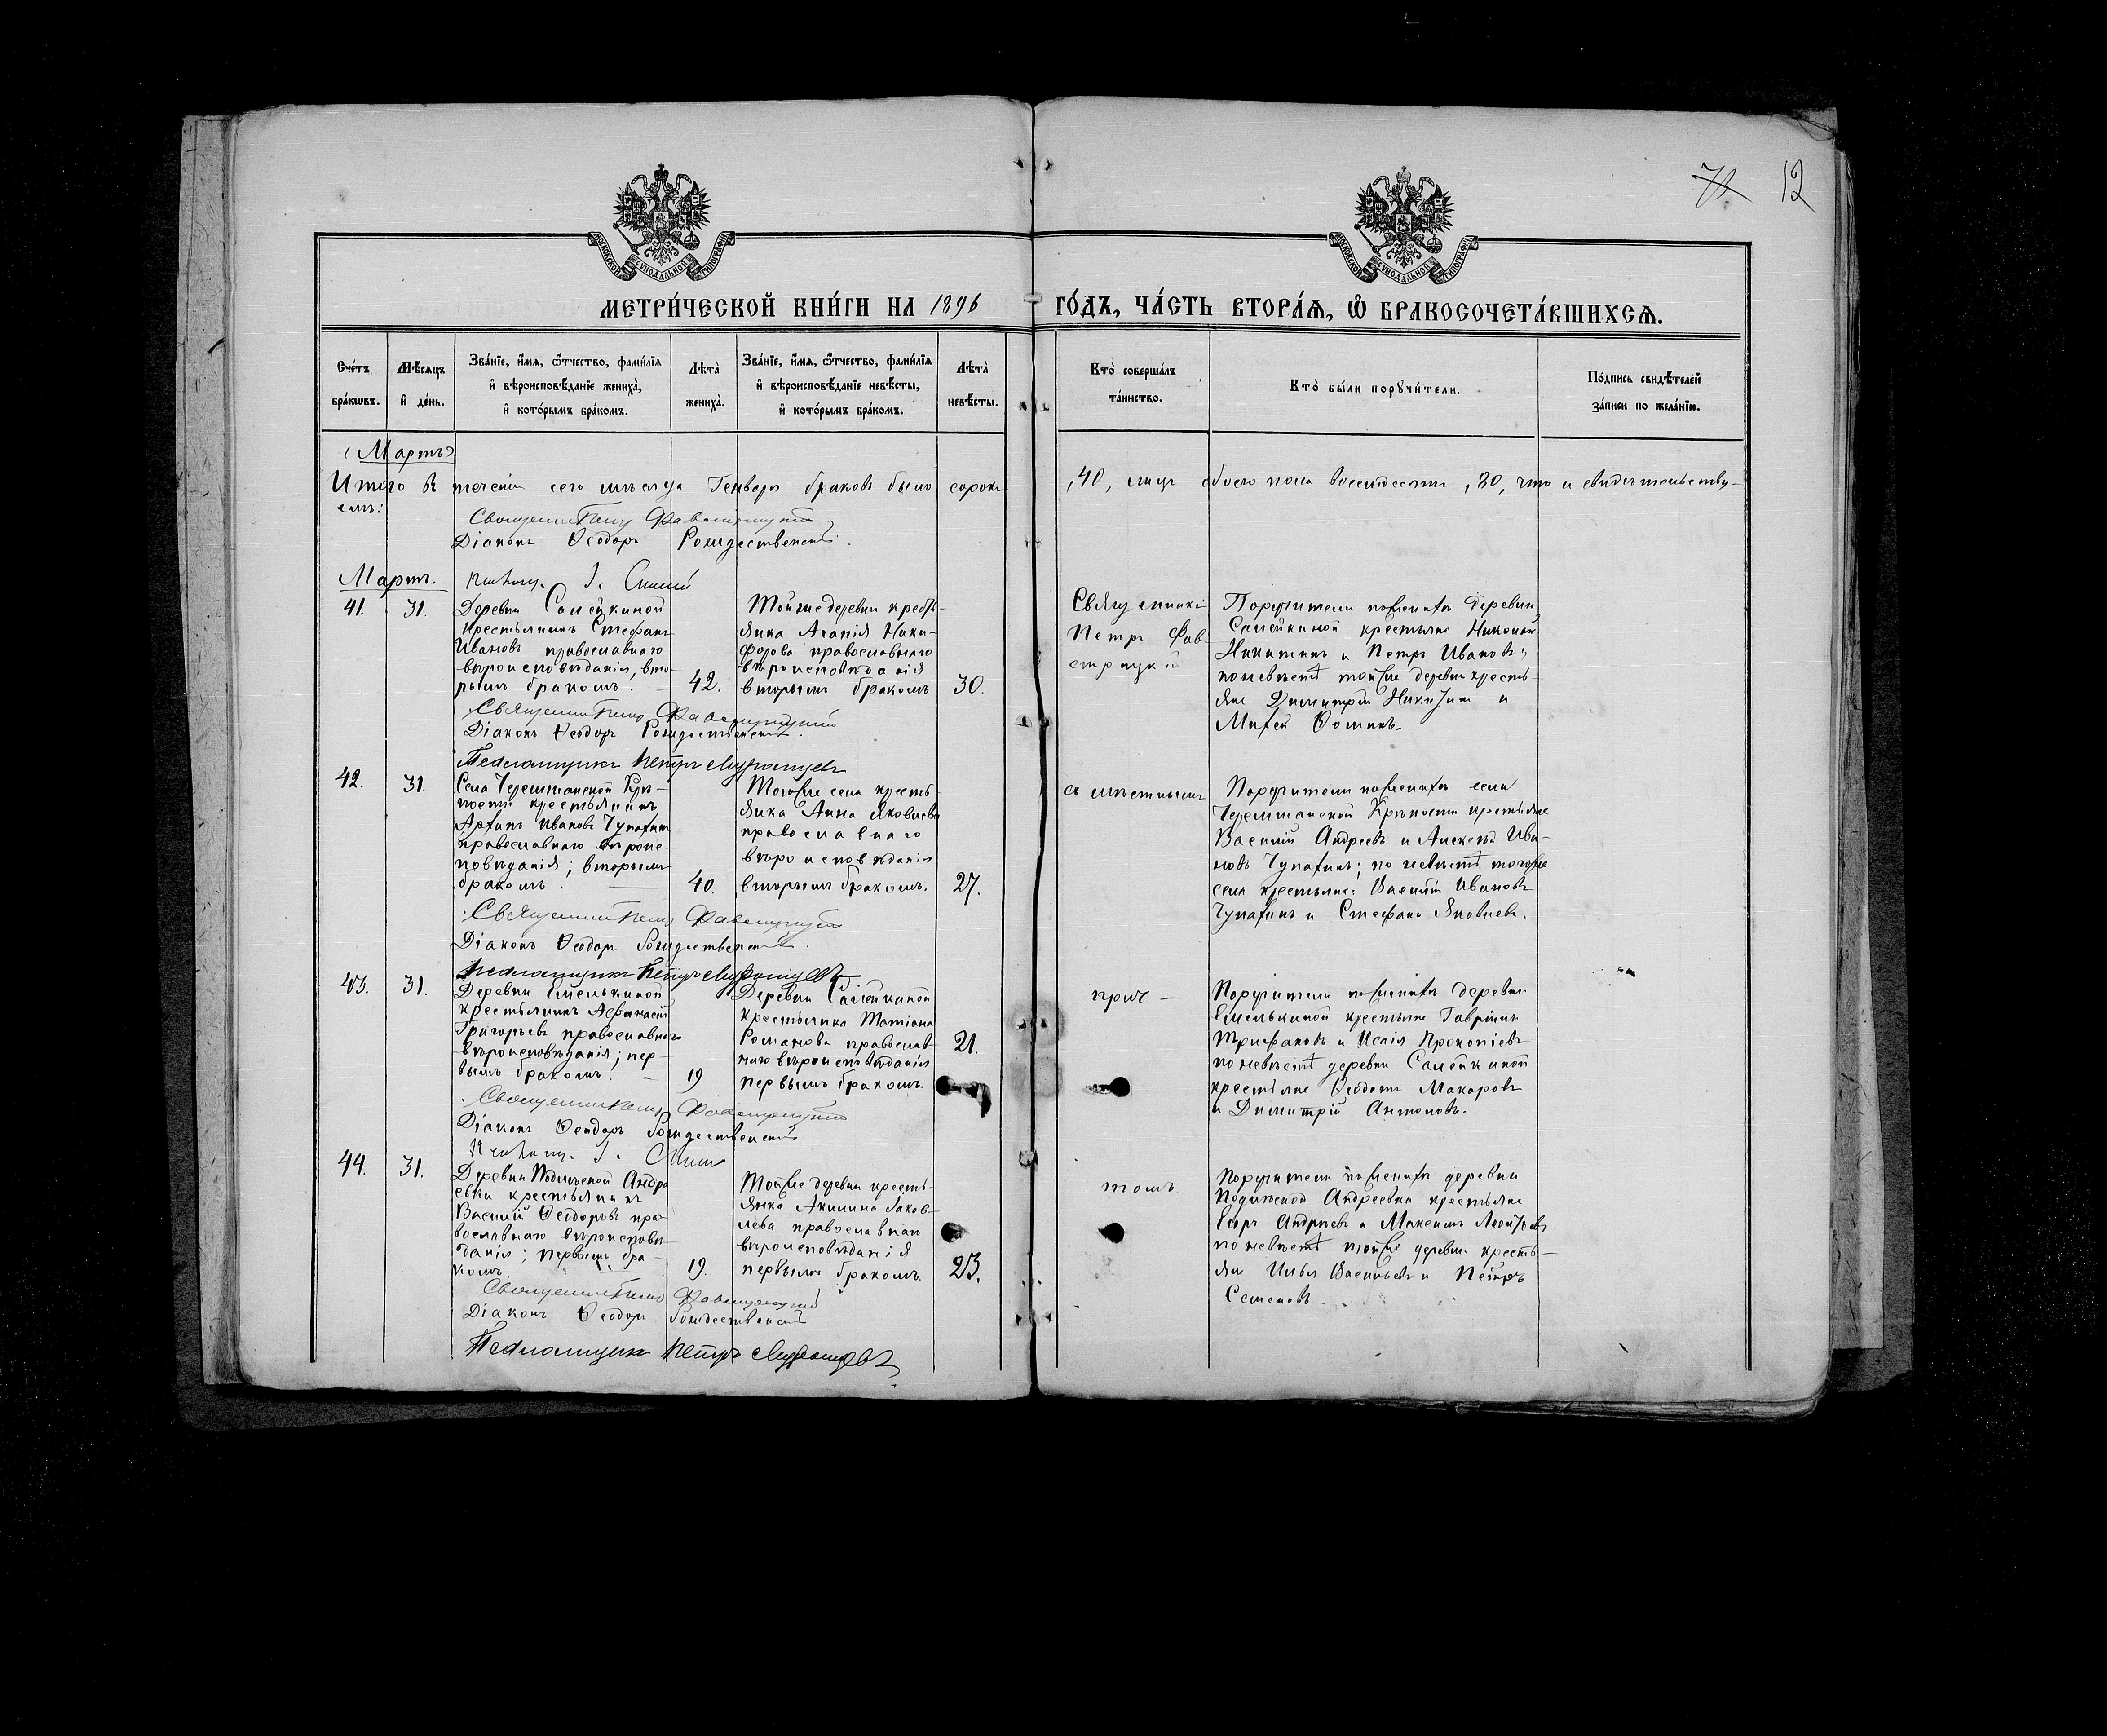 12
МОСКОВСКОЙ СѴНОДАЛЬНОЙ ТИПОГРАФІИ
МОСКОВСКОЙ СѴНОДАЛЬНОЙ ТИПОГРАФІИ
МЕТРИ́ЧЕСКОЙ КНИ́ГИ НА 1896 ГО́ДЪ, ЧА́СТЬ ВТОРА́Ѧ, Ѽ БРАКОСОЧЕТА́ВШИХСѦ.
Сче́тъ бра́кѡвъ.
Мѣ́сѧцъ и҆ де́нь.
Зва́нїе, и҆́мѧ, ѻ҆́тчество, фами́лїѧ
и҆ вѣроисповѣ́данїе жениха̀,
и҆ кото́рымъ бра́комъ.
Лѣта̀ жениха̀.
Зва́нїе, и҆́мѧ, ѻ҆́тчество, фами́лїѧ
и҆ вѣроисповѣ́данїе невѣ́сты,
и҆ кото́рымъ бра́комъ.
Лѣта̀ невѣ́сты.
Кто̀ соверша́лъ
та́инство.
Кто̀ бы́ли порꙋчи́тели.
По́дпись свидѣ́телей
за́писи по жела́нїю.
(Мартъ)
Итого въ теченіи сего мѣсяца Генваря браковъ было сорокъ ,40, лицъ обоего пола восемдесятъ ,80, что и свидѣтельству-
емъ:
Священникъ Петръ
Діаконъ Ѳеодоръ Рождественскій.
Мартъ.
41. 31.
Деревни Самейкиной
крестьянинъ Стефанъ
Ивановъ православнаго
вѣроисповѣданія, вто-
рымъ бракомъ.
42.
Тойже деревни кресть-
янка Агапія Ники-
форова православнаго
вѣроисповѣданія
вторымъ бракомъ
30.
Священникъ
Петръ Фав-
стрицкій
Поручители по женихѣ деревни
Самейкиной крестьяне Николай
Никитинъ и Петръ Ивановъ;
по невѣстѣ тойже деревни кресть-
яне Димитрій Никитинъ и
Михей Ѳоминъ.
Священникъ Петръ
Діаконъ Ѳеодоръ Рождественскій.
Псаломщикъ Петръ
42. 31.
Села Черемшанской Крѣ-
пости крестьянинъ
Архипъ Ивановъ Чупахинъ
православнаго вѣроис-
повѣданія; вторымъ
бракомъ.
40.
Тогоже села кресть-
янка Анна Яковлева
православнаго
вѣроисповѣданія
вторымъ бракомъ.
27.
съ мѣстнымъ
Поручители по женихѣ села
Черемшанской Крѣпости крестьяне
Василій Андреевъ и Алексѣй Ива-
новъ Чупахинъ; по невѣстѣ тогоже
села крестьяне: Василій Ивановъ
Чупахинъ и Стефанъ Яковлевъ.
Священникъ Петръ
Діаконъ Ѳеодоръ Рождественскій.
Псаломщикъ Петръ
43. 31.
Деревни Емелькиной
крестьянинъ Аѳанасій
Григорьевъ православнаго
вѣроисповѣданія; пер-
вымъ бракомъ.
19
Деревни Самейкиной
крестьянка Татіана
Романова православ-
наго вѣроисповѣданія
первымъ бракомъ.
21.
прич-
Поручители по женихѣ деревни
Емелькиной крестьяне Гавріилъ
Трифановъ и Исаія Прокопіевъ
по невѣстѣ деревни Самейкиной
крестьяне Ѳеодотъ Макаровъ
и Димитрій Антоновъ.
Священникъ Петръ
Діаконъ Ѳеодоръ Рождественскій
44. 31.
Деревни Подлѣсной Андре
евки крестьянинъ
Василій Ѳеодоровъ пра-
вославнаго вѣроисповѣ-
данія; первымъ бра-
комъ.
19.
Тойже деревни кресть-
янка Акилина Іаков-
лева православнаго
вѣроисповѣданія
первымъ бракомъ.
23.
томъ
Поручители по женихѣ деревни
Подлѣсной Андреевки крестьяне
Егоръ Андреевъ и Максимъ Леонтьевъ
по невѣстѣ тойже деревни кресть-
яне Илья Васильевъ и Петръ
Семеновъ.
Священникъ Петръ
Діаконъ Ѳеодоръ Рождественскій
Псаломщикъ Петръ